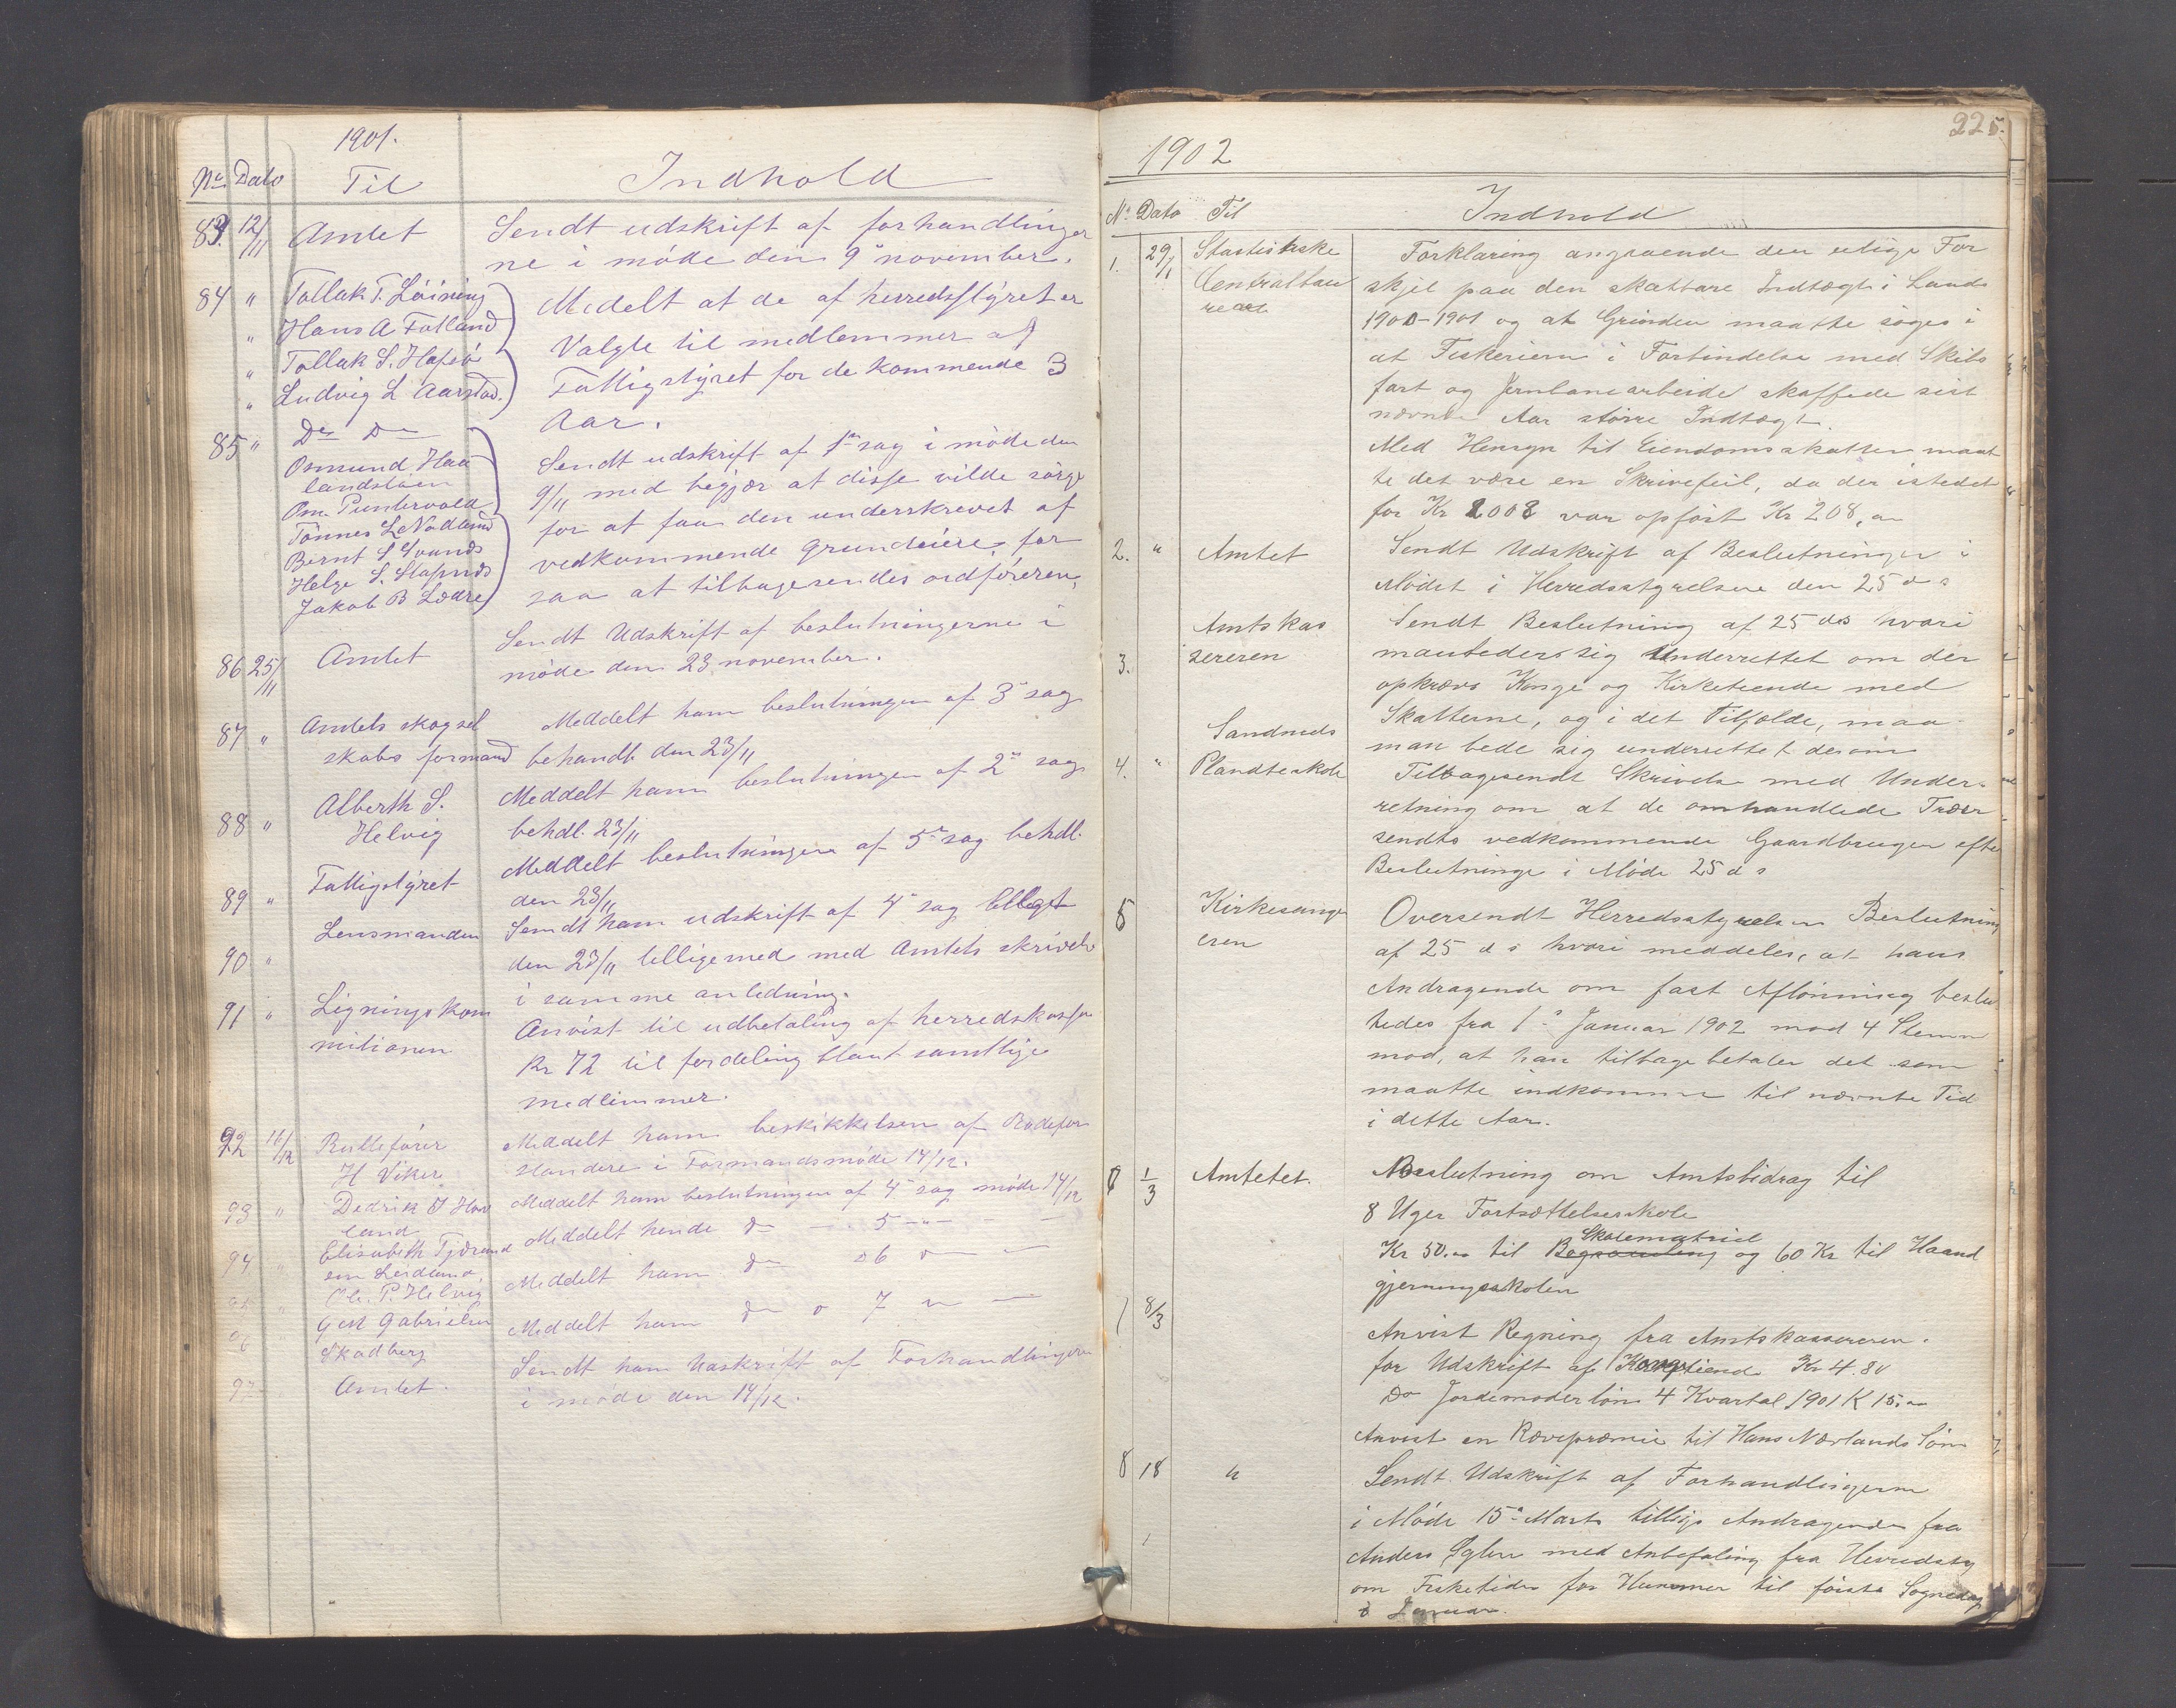 1901.
No Dato Til Indhold
83 12/11 Amtet Sendt udskrift af forhandlinger
ne i møde den 9 november.
84 " Tollak T. Løining Medelt at de af herredsstyret er
" Hans A Fotland Valgte til medlemmer af
" Tollak S. Hafsø Fattigstyret for de kommende 3
" Ludvig L Aarstad. Aar.
85 " Do Do Sendt udskrift af 1ste sag i møde den
Osmund Haa
landsløien 9/11 med begjær at disse vilde sørge
Om. Puntervold for at faa den underskrevet af
Tønnes L Nodland
Bernt S Svands vedkommende grundeiere for
Helge S. Stapnes
Jakob B Lædre saa at tilbagesendes ordføreren,
86 25/11 Amtet Sendt Udskrift af beslutningerne i
møde den 23 november.
87 " Amtets skogsel Meddelt ham beslutningen af 3 sag
skabs formand behandt. den 23/11
88 " Alberth S. Meddelt ham beslutningen af 2 sag
Helvig behdl. 23/11
89 " Fattigstyret Meddelt beslutningen af 5 sag behdl.
den 23/11
90 " Lensmanden Sendt ham udskrift af 4 sag
den 23/11 tilligemed med Amtets skrivelse
i samme anledning.
91 " Ligningskom Anvist til udbetaling af herredskassen
mitionen Kr 72 til fordeling blant samtlige
medlemmer.
92 16/12 Rullefører Meddelt ham beskikkelsen af Rodefor
H Viker standere i Formandsmøde 14/12.
93 " Dedrik T Hov Meddelt ham beslutningen af 4 sag møde 14/12
land
94 " Elisabeth Tjørand Meddelt hende do — 5 —
em Leidland,
95 " Ole. P. Helvig Meddelt ham do 6
96 " G M Gabrielsen Meddelt ham do 7
Skadberg
97 Amtet. Sendt ham Udskrift af Forhandlingerne
i møde den 14/12.
225.
1902
No Dato Til Indhold
1. 29/1 Statistiske Forklaring angaaende den ulige For
Centralbau skjel paa den skatbare Indtægt i Lands
reau 1900-1901 og at Grunden maatte søges i
at Fiskerierne i Forbindelse med Skibs
fart og Jernbanearbeide skaffede sist
nævnte Aar større Indtægt.
Med Hensyn til Eiendomsskatten maat
te det være en Skrivefeil, da der istedet
for Kr 2008 var opført Kr 208,00
2. " Amtet Sendt Udskrift af Beslutninger i
Mødet i Herredsstyrelsen den 25 ds
Amtskas Sendt Beslutning af 25 ds hvori
3. sereren man beder sig underrettet om der
opkræves Konge og Kirketiende med
Skatterne, og i det Tilfælde, maa
Sandnes man bede sig underrettet derom
4. " Plandteskole Tilbagesendt Skrivelse med Under-
retning om at de omhandlede Træer
sendtes vedkommende Gaardbruger efter
Beslutninge i Møde 25 ds
5 Kirkesange Oversendt Herredsstyrelsen Beslutning
eren af 25 ds hvori meddeles, at hans
Andragende om fast Aflønning beslut
tedes fra 1ste Januar 1902 mod 4 Stemm
mod, at han tilbagebetaler det som
maatte indkomme til nævnte Tid
i dette Aar.
6 1/3 Amtetet. Beslutning om Amtsbidrag til
8 Uger Fortsættelsesskole
Skolematriel
Kr 50.00 til Bogsamling og 60 Kr til Haand
gjerningsskolen
7 8/3 Anvist Regning fra Amtskassereren.
for Udskrift af Kongetiende Kr 4.80
Do Jordemoderløn 4 Kvartal 1901 K 15.00
Anvist en Rævepræmie til Hans Nærlands Søn
8 18 " Sendt Udskrift af Forhandlingerne
i Møde 15 Marts tillige Andragende fra
Anders med Anbefaling fra Herredssty
om Fisketiden for Hummer til første Sognedag
i Januar.